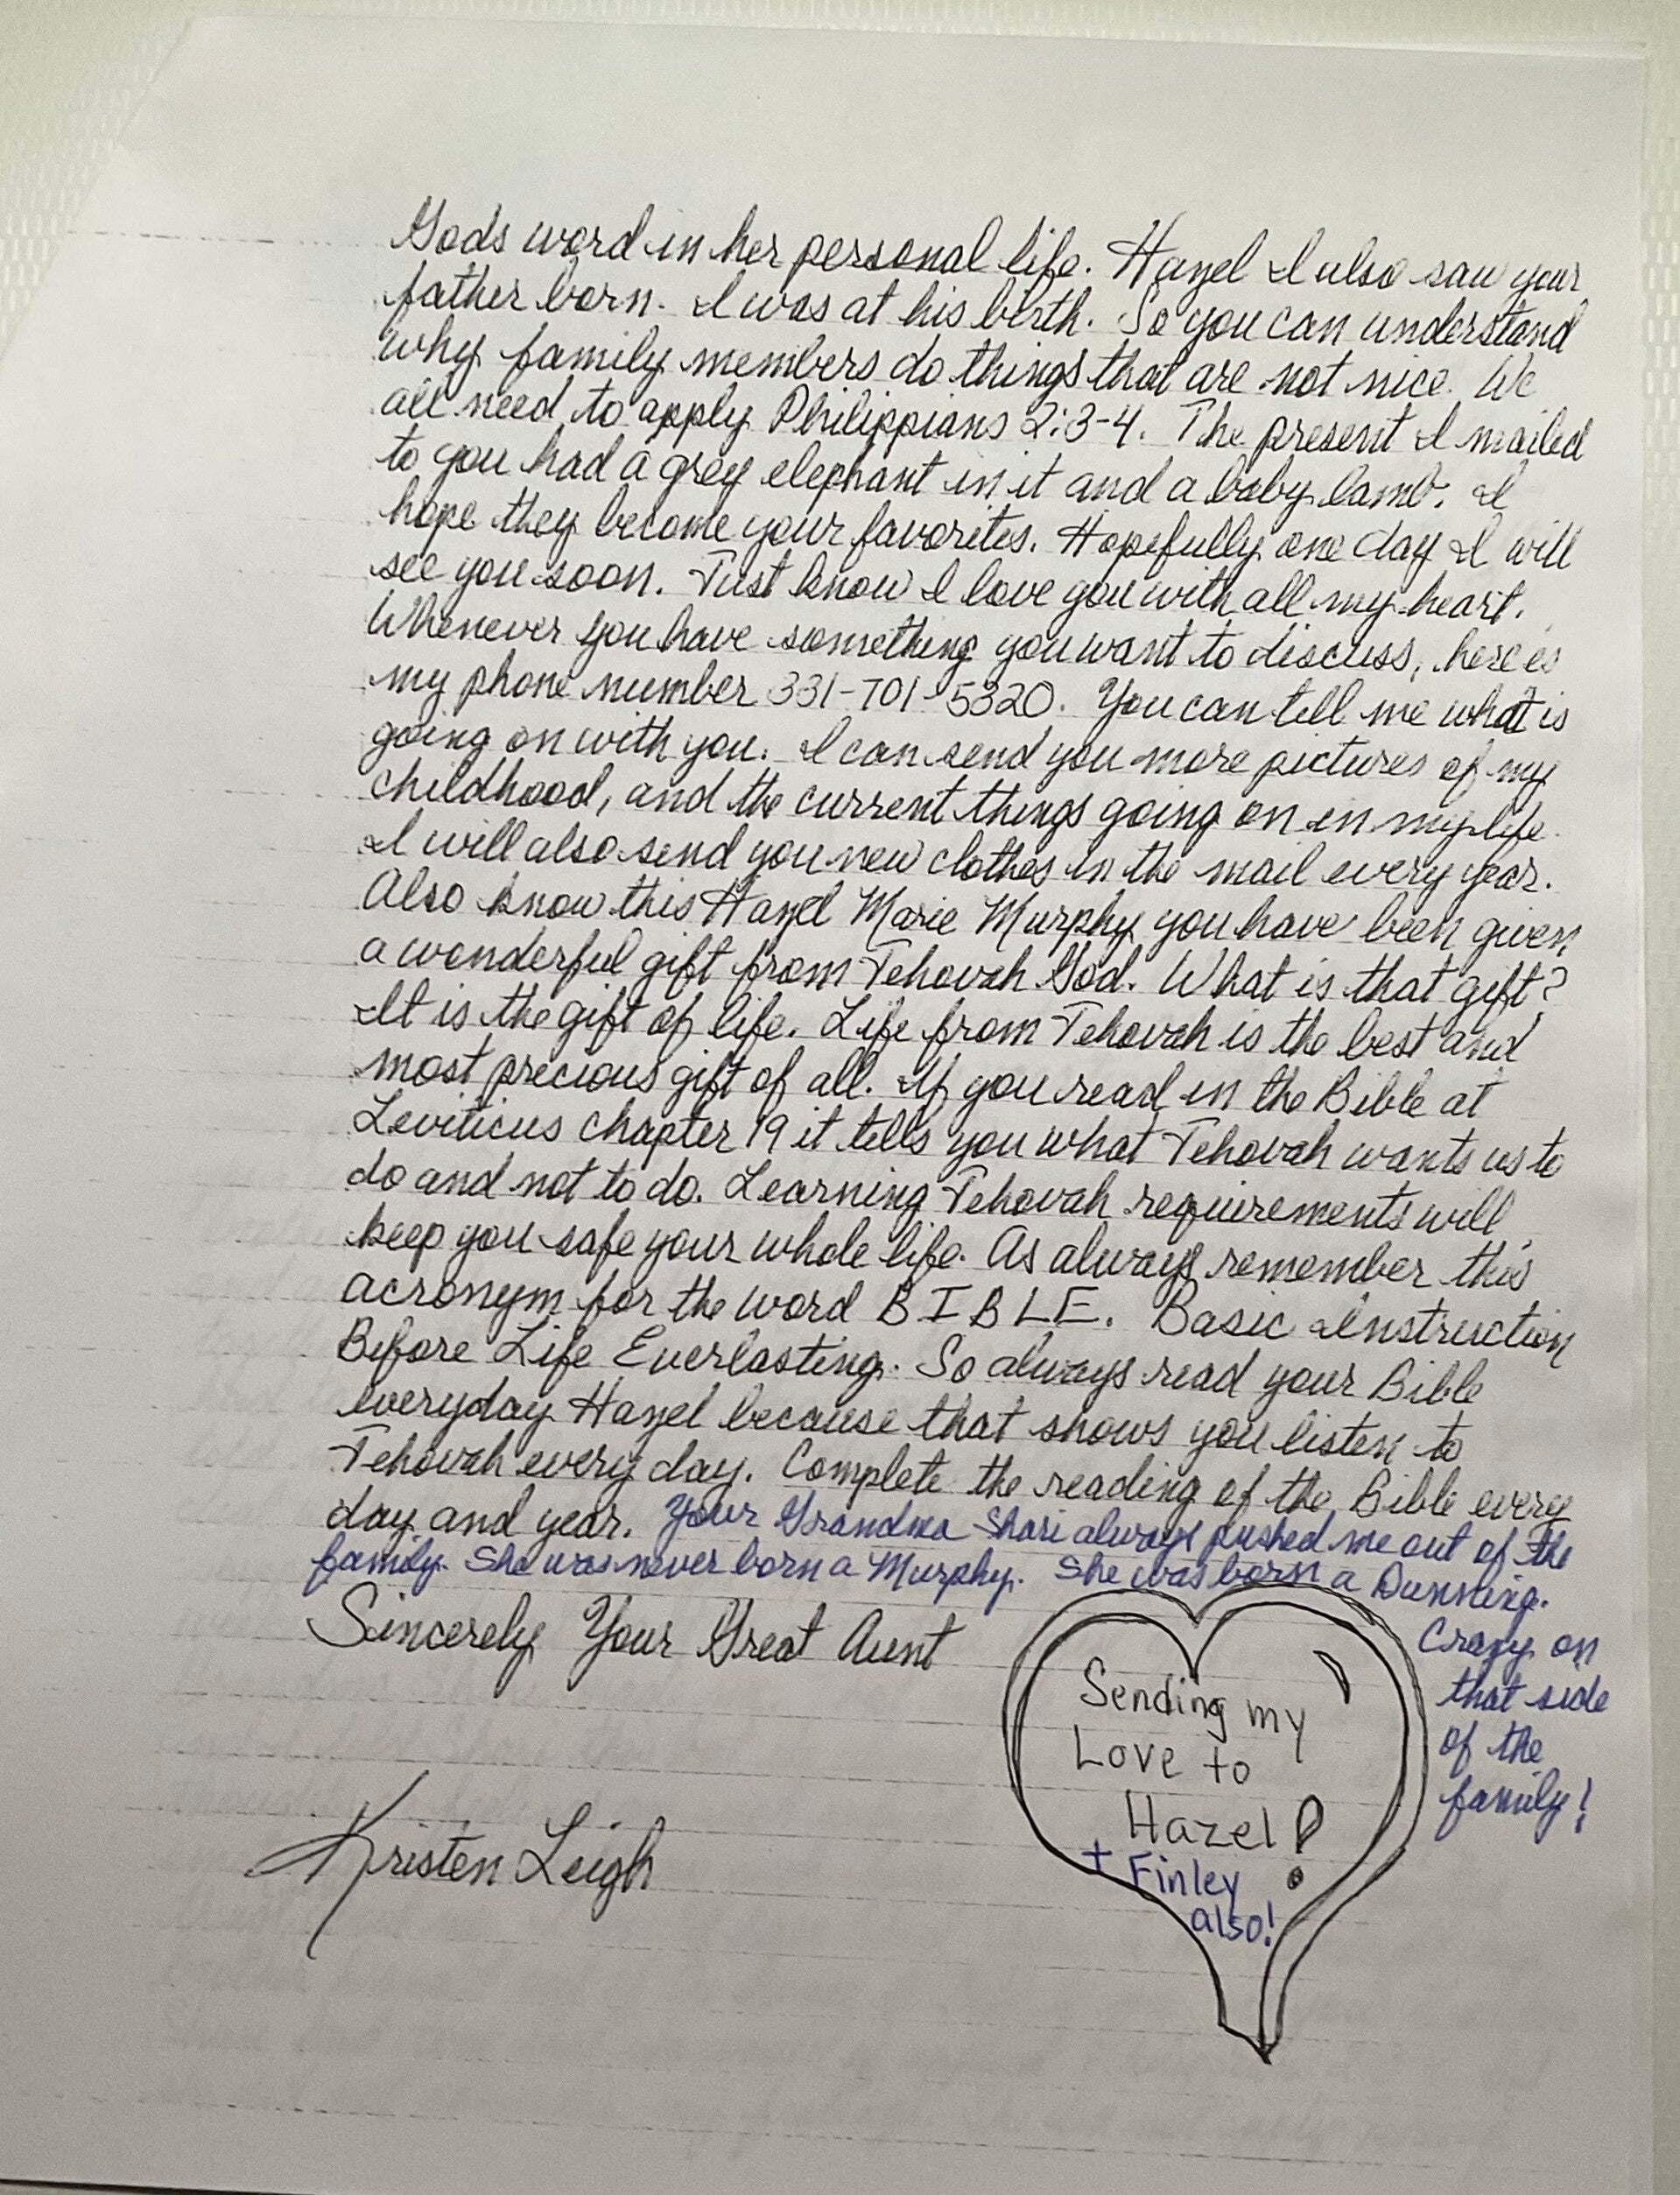 Gods word in her personal life. Hazel I also saw your
father born. I was at his birth. So you can understand
why family members do things that are not nice. We
all need to apply Philippians 2:3-4. The present I mailed
to you had a grey elephant in it and a baby lamb. I
hope they become your favorites. Hopefully one day I will
see you soon. Just know I love you with all my heart.
Whenever you have something you want to discuss, here is
my phone number 331-701-5320. You can tell me what is
going on with you. I can send you more pictures of my
childhood, and the current things going on in my life.
I will also send you new clothes in the mail every year.
Also know this Hazel Marie Murphy you have been given
a wonderful gift from Jehovah God. What is that gift?
It is the gift of life. Life from Jehovah is the best and
most precious gift of all. If you read in the Bible at
Leviticus chapter 19 it tells you what Jehovah wants us to
do and not to do. Learning Jehovah requirements will
keep you safe your whole life. As always remember this
acronym for the word BIBLE. Basic Instruction
Before Life Everlasting. So always read your Bible
everyday Hazel because that shows you listen to
Jehovah every day. Complete the reading of the Bible every
day and year. Your Grandma Shari always pushed me out of the
family. She was never born a Murphy. She was born a Dunning.
Crazy on
that side
of the
family!
Sincerely Your Great Aunt
Kristen Leigh
Sending my
Love to
Hazel!
+ Finley
also!